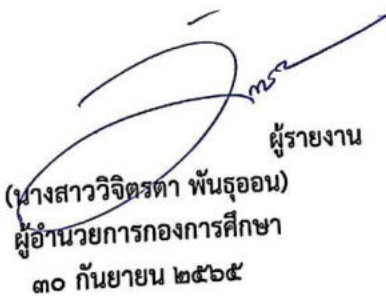 ผู้รายงาน
(นางสาววิจิตรตา พันธุออน)
ผู้อำนวยการกองการศึกษา
๓๐ กันยายน ๒๕๖๕